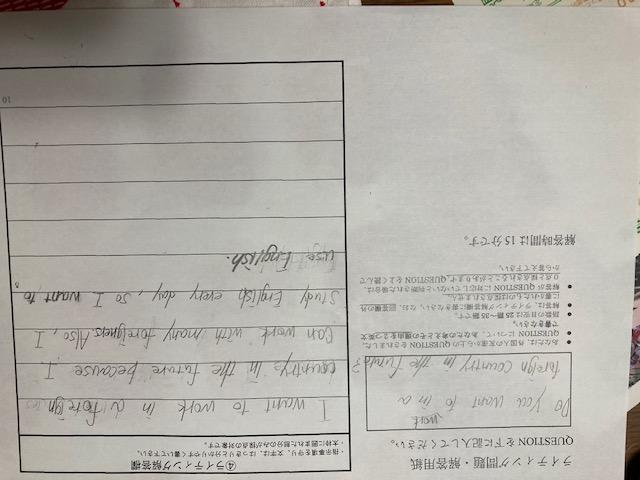 ライティング問題・解答用紙
QUESTION を下に記入してください。
work
Do you want to in a
foreign country in the future?
● あなたは、外国人の友達からの QUESTION をされました。
● QUESTION について、あなたの考えとその理由を2つ英文
で書きなさい。
● 語数の目安は 25 語～35 語です。
● 解答は、ライティング解答欄に書きなさい。なお、解答欄の外
に書かれたものは採点されません。
● 解答が QUESTION に対応していないと判断された場合は、
0点と採点されることがあります。QUESTION をよく読んで
から答えて下さい。
解答時間は 15 分です。
④ライティング解答欄
・指示事項を守り、文字は、はっきりと分かりやすく書いて下さい。
・太枠に囲まれた部分のみが採点の対象です。
I want to work in a foreign
countrys in the future because I
can work with many foreigners. Also, I
study English every day, so I want to
use English.
10